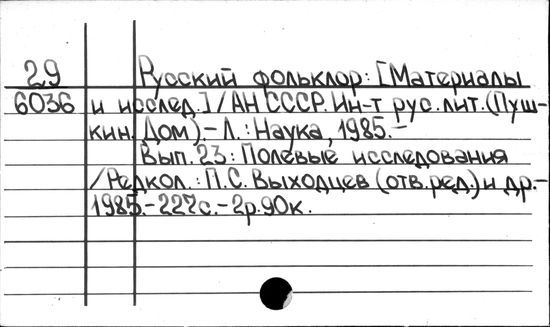 29 Русский фольклор: [Материалы
6036 и исслед.]/АН СССР. Ин-т рус. лит. (Пуш-
кин. Дом).- Л.: Наука, 1985.-
Вып. 23: Полевые исследования
/Редкол.: П.С. Выходцев (отв. ред.) и др.-
1985.- 227с.- 2р.90к.